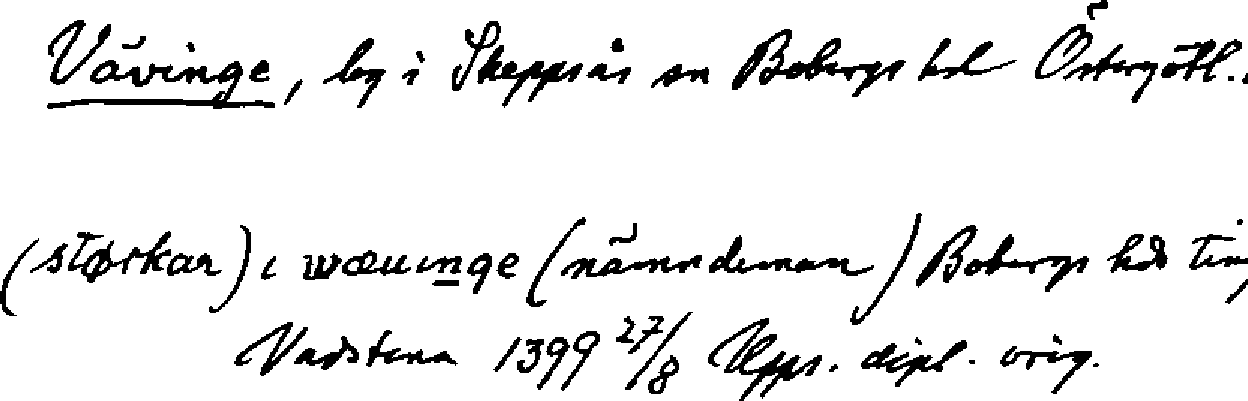 Vävinge, by i Skeppsås sn Bobergs hd Östergötl..
(størkar) i wæuinge (nämndeman) Bobergs hds ting
Vadstena 1399 27/8 Upps. dipl. orig.